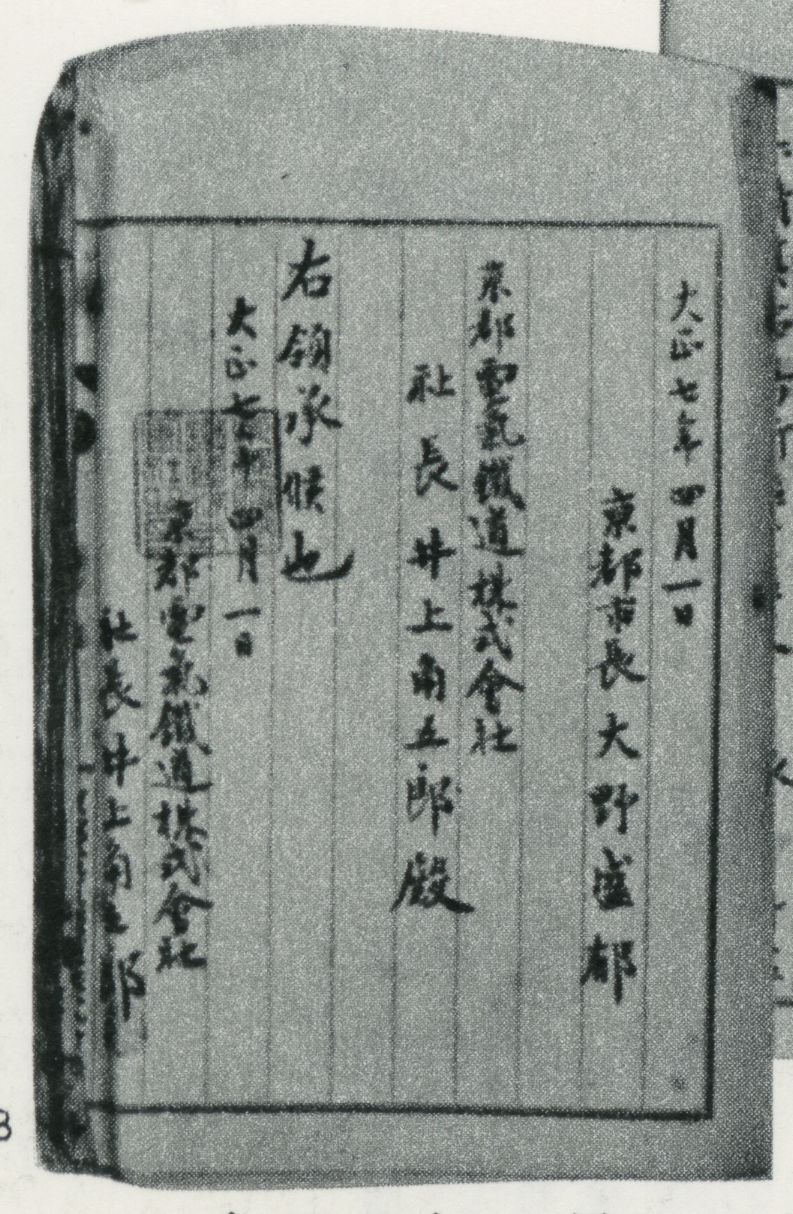 大正七年四月一日
京都市長大野盛郁
京都電氣鐵道株式會社
社長井上角五郎殿
右領承候也
大正七年四月一日
京都電氣鐵道株式會社
社長井上角五郎